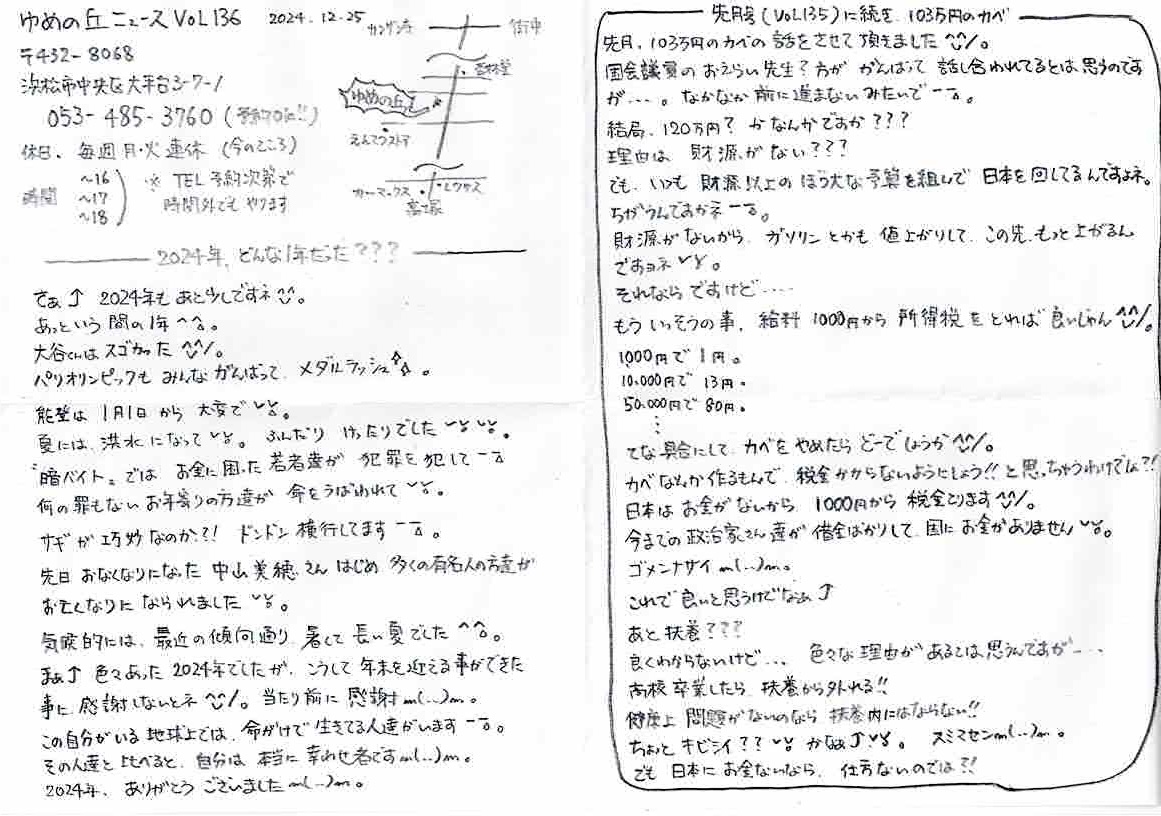 ゆめの丘ニュース VOL 136　2024.12.25
〒432-8068
浜松市中央区大平台3-7-1
053-485-3760 (予約TELに!!)
休日、毎週 月・火 連休 (今のところ)
時間
～16
～17
～18
※ TEL予約次第で
時間外でもやります
カンザン寺
街中
杏林堂
ゆめの丘
えんてつストア
カーマックス
レクサス
高塚
2024年、どんな1年だった???
さぁ↑ 2024年も あと少しですネ^^。
あっという間の1年^^。
大谷くんは スゴかった^^/。
パリオリンピックも みんながんばって、メダルラッシュ⇧⇧。
能登は 1月1日から 大変で
夏には、洪水になって ふんだり けったりでした
"暗バイト"では お金に困った若者達が 犯罪を犯して
何の罪もないお年寄りの方達が 命をうばわれて
サギが巧妙なのか?! ドンドン横行してます
先日 おなくなりになった 中山美穂さんはじめ 多くの有名人の方達が
お亡くなりに なられました
気候的には、最近の傾向通り、暑くて 長い夏でした^^。
まぁ↑ 色々あった 2024年でしたが、こうして 年末を迎える事ができた
事に、感謝しないとネ^^/。当たり前に 感謝m(..)m。
この自分がいる地球上では、命がけで生きてる人達がいます
その人達と比べると、自分は 本当に 幸わせ者ですm(..)m。
2024年、ありがとう ございましたm(..)m。
先月号(VOL135)に続き、103万円のカベ
先月、103万円のカベの話をさせて頂きました^^/。
国会議員の おえらい先生?方が がんばって 話し合われてるとは、思うのです
が…。なかなか前に進まないみたいで
結局、120万円? かなんかですか???
理由は 財源がない???
でも、いつも 財源以上の ぼう大な予算を組んで 日本を回してるんですよネ。
ちがうんですかネ
財源がないから、ガソリンとかも 値上がりして、この先、もっと上がるん
ですョネ
それなら ですけど‥‥
もう いっそうの事、給料 1000円から 所得税を とれば 良いじゃん^^/。
1000円で 1円。
10.000円で 13円。
50.000円で 80円。
⋮
てな具合にして、カベを やめたら どーでしょうか^^/。
カベなんか作るもんで、税金かからないようにしよう!! と思っちゃうわけでね?!
日本は お金がないから、1000円から 税金とります^^/。
今までの政治家さん達が 借金ばかりして、国に お金がありません
ゴメンナサイm(..)m。
これで良いと思うけどなぁ↑
あと 扶養???
良くわからないけど… 色々な理由が あるとは、思うんですが‥‥
高校卒業したら、扶養から外れる!!
健康上 問題がないのなら 扶養内にはならない!!
ちょっと キビシイ?? かなぁ↑ スミマセンm(..)m。
でも 日本に お金ないなら、仕方ないのでは?!